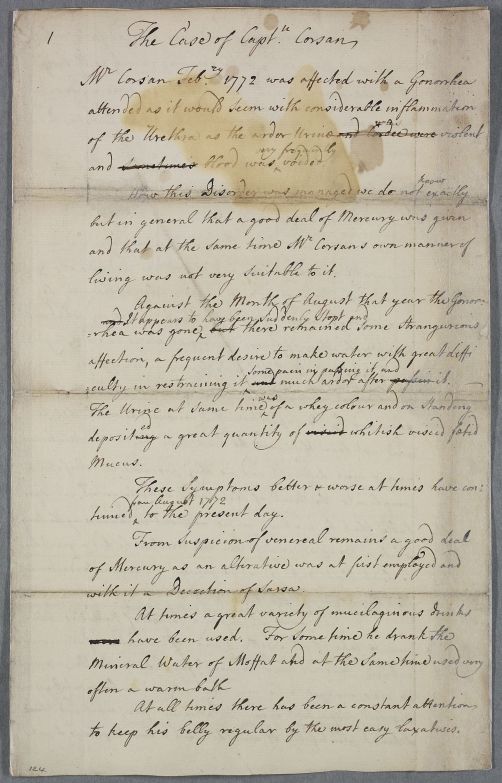 1
The Case of Captn Corsan
Mr Corsan Febry 1772 was affected with a Gonorrhea
attended as it would seem with considerable inflammation
of the Urethra as the ardor Urinæ and Cordee were violent
very frequently
and sometimes blood was voided
know
How this Disorder was managed we do not exactly
but in general that a good deal of Mercury was given
and that at the same time Mr Corsans own manner of
living was not very suitable to it.
Against the Month of August that year the Gonor-
and It appears to have been suddenly stopt and
-rhea was gone, but there remained some Strangurious
affection, a frequent desire to make water with great diffi
some pain in passing it and
-culty in restraining it and much ardor after passin it.
was
The Urine at same time of a whey colour and on standing
ed
depositing a great quantity of whitish viscid fœtid
Mucus.
These Symptoms better & worse at times have con:
from August 1772
tinued to the present day.
From suspicion of venereal remains a good deal
of Mercury as an alterative was at first employed and
with it a Decoction of Sarsa.
At times a great variety of mucilaginous drinks
have been used. For some time he drank the
Mineral Water of Moffat and at the same time used very
often a warm bath
At all times there has been a constant attention
to keep his belly regular by the most easy laxatives.
124